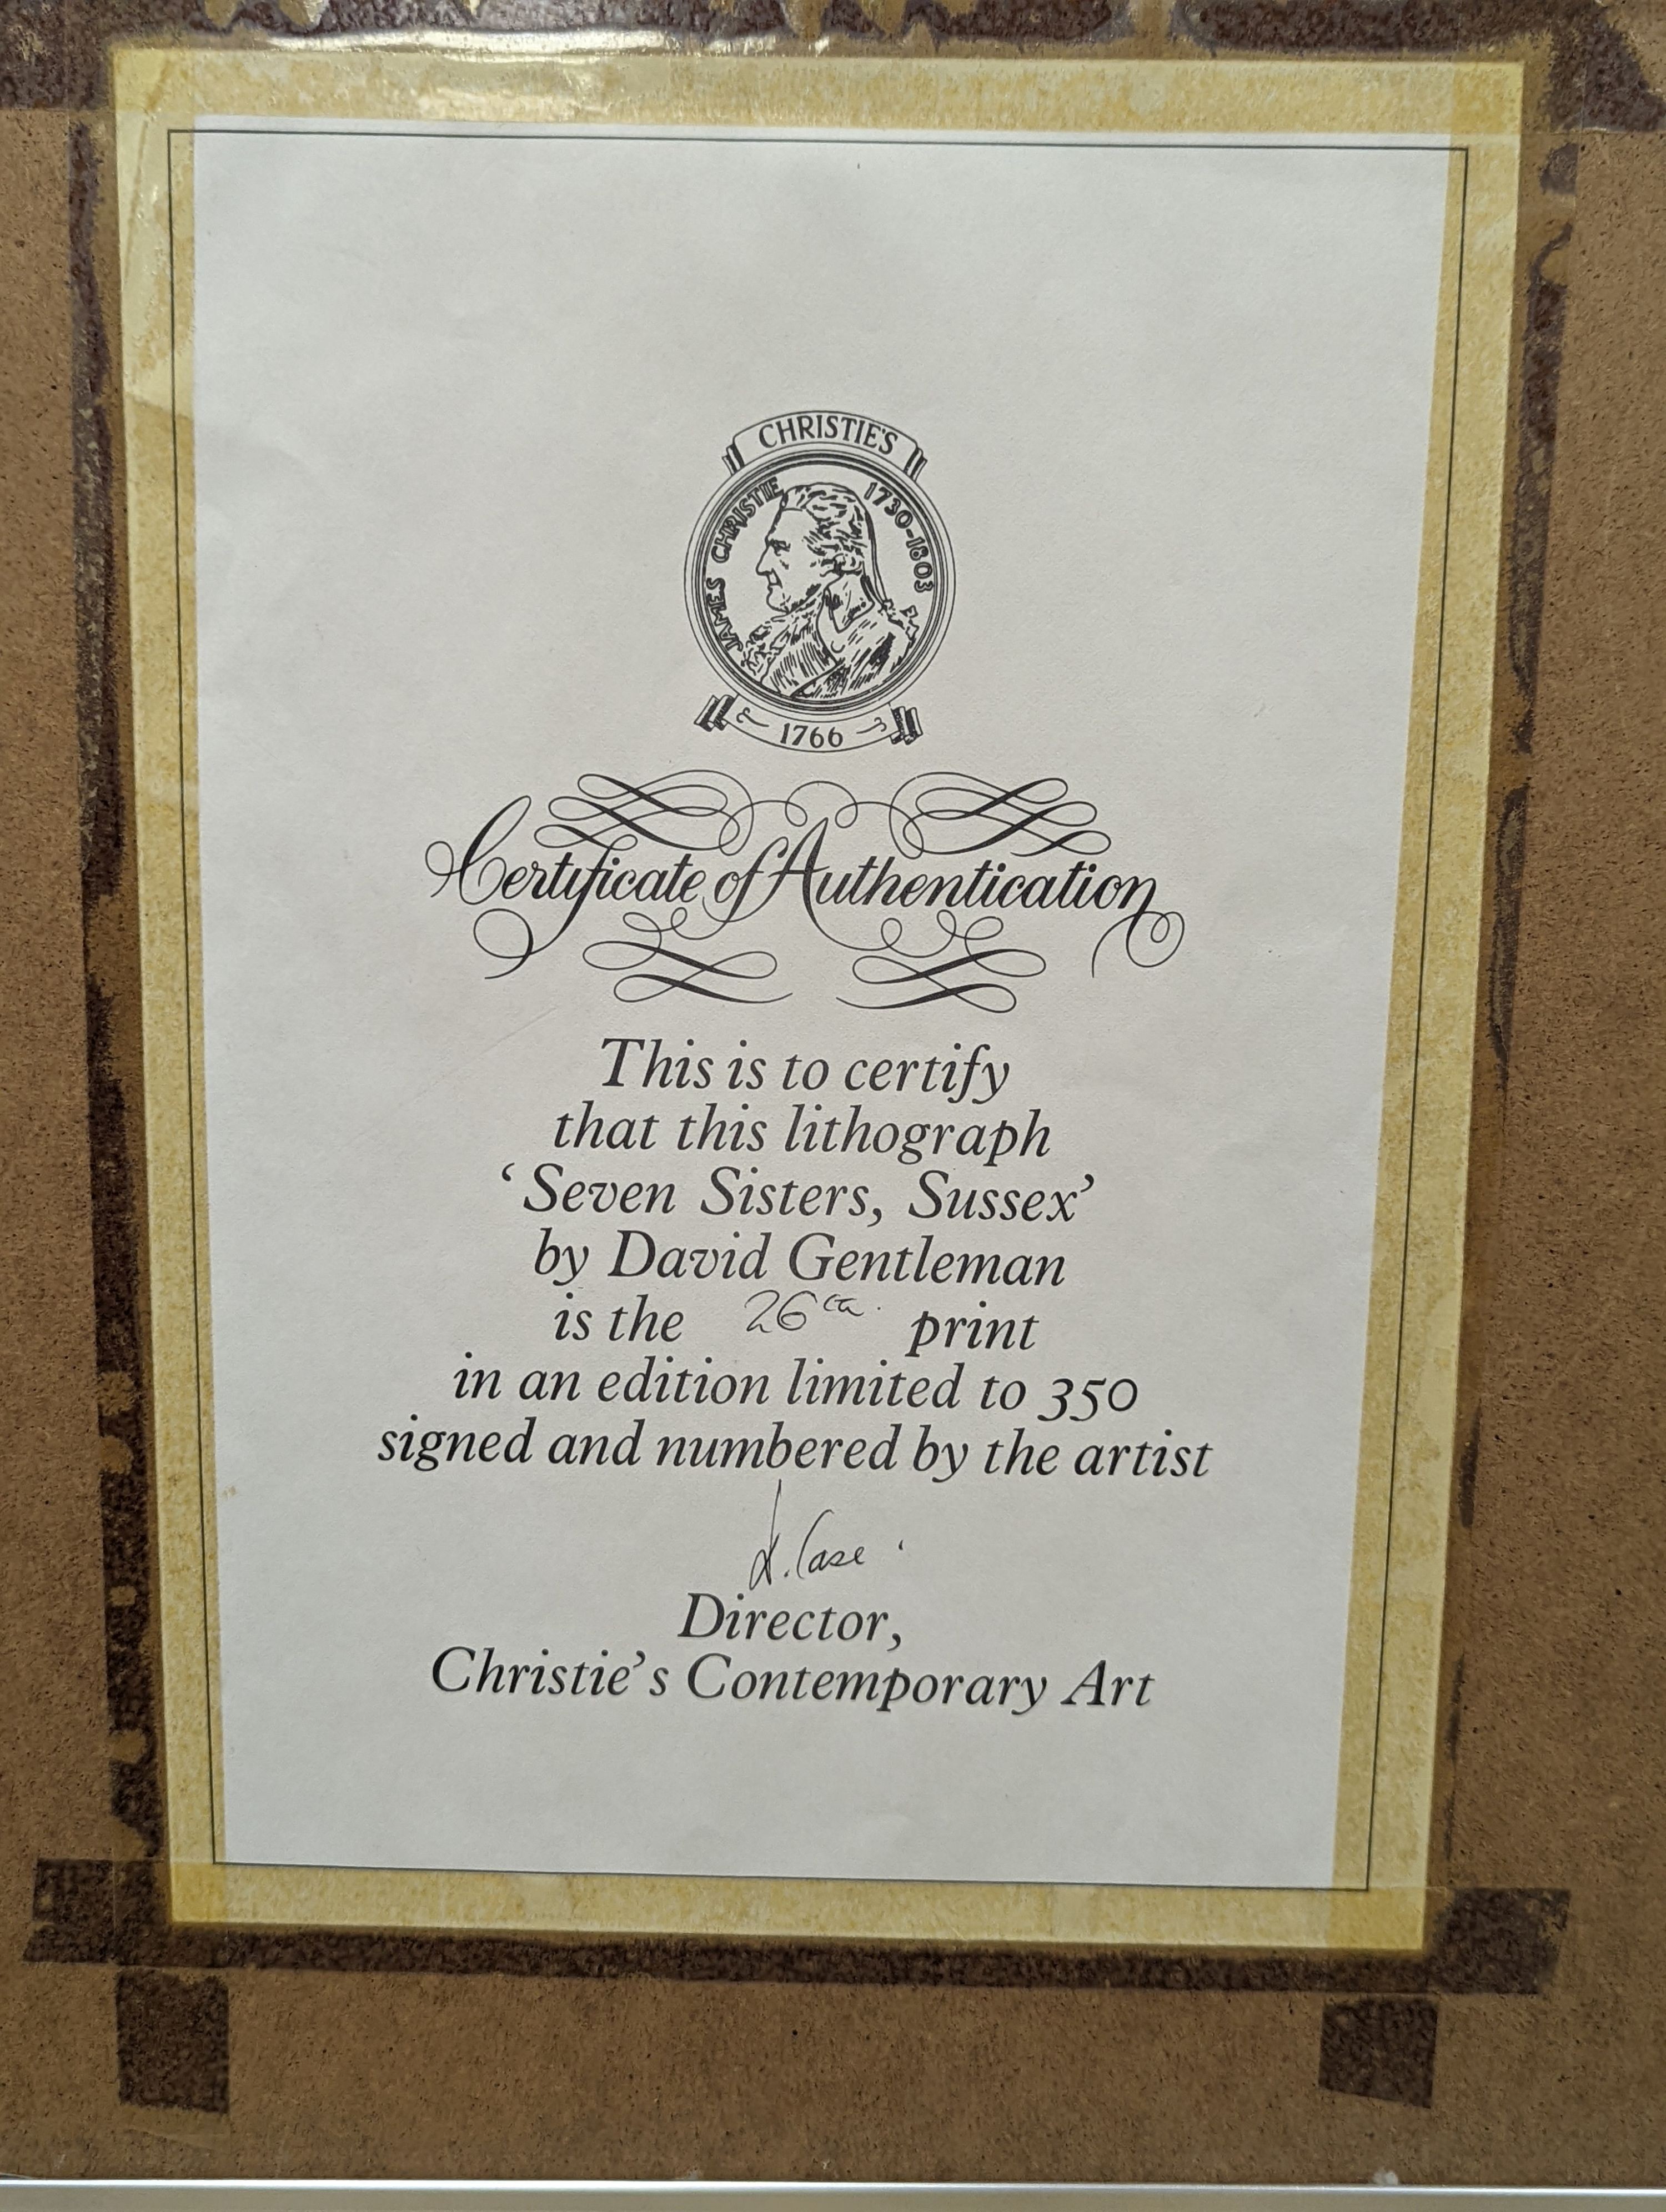 CHRISTIE'S
JAMES CHRISTIE 1730-1803
1766
Certificate of Authentication
This is to certify
that this lithograph
‘Seven Sisters, Sussex’
by David Gentleman
is the 26th print
in an edition limited to 350
signed and numbered by the artist
D. Case
Director,
Christie’s Contemporary Art